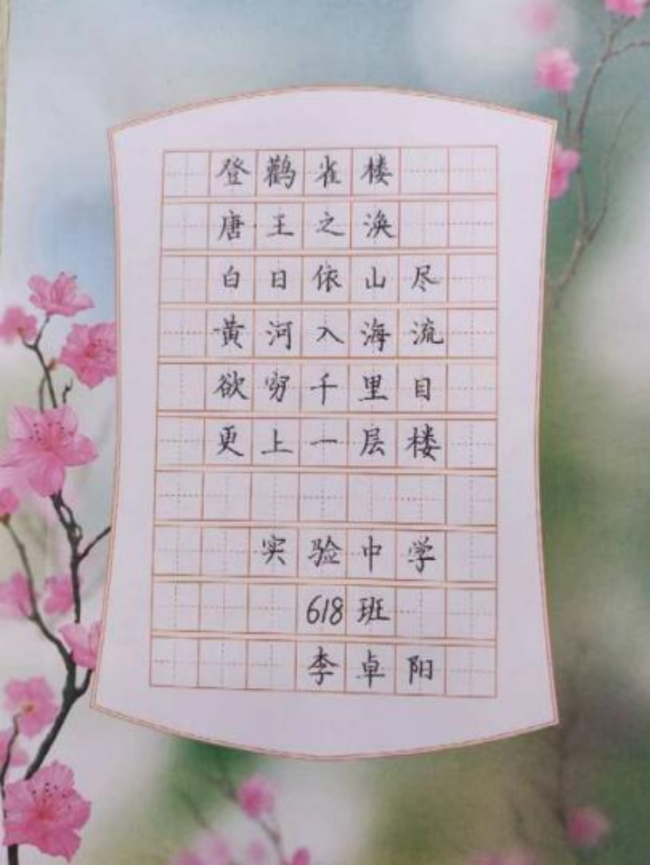 登鹳雀楼
唐王之涣
白日依山尽
黄河入海流
欲穷千里目
更上一层楼
实验中学
618班
李卓阳